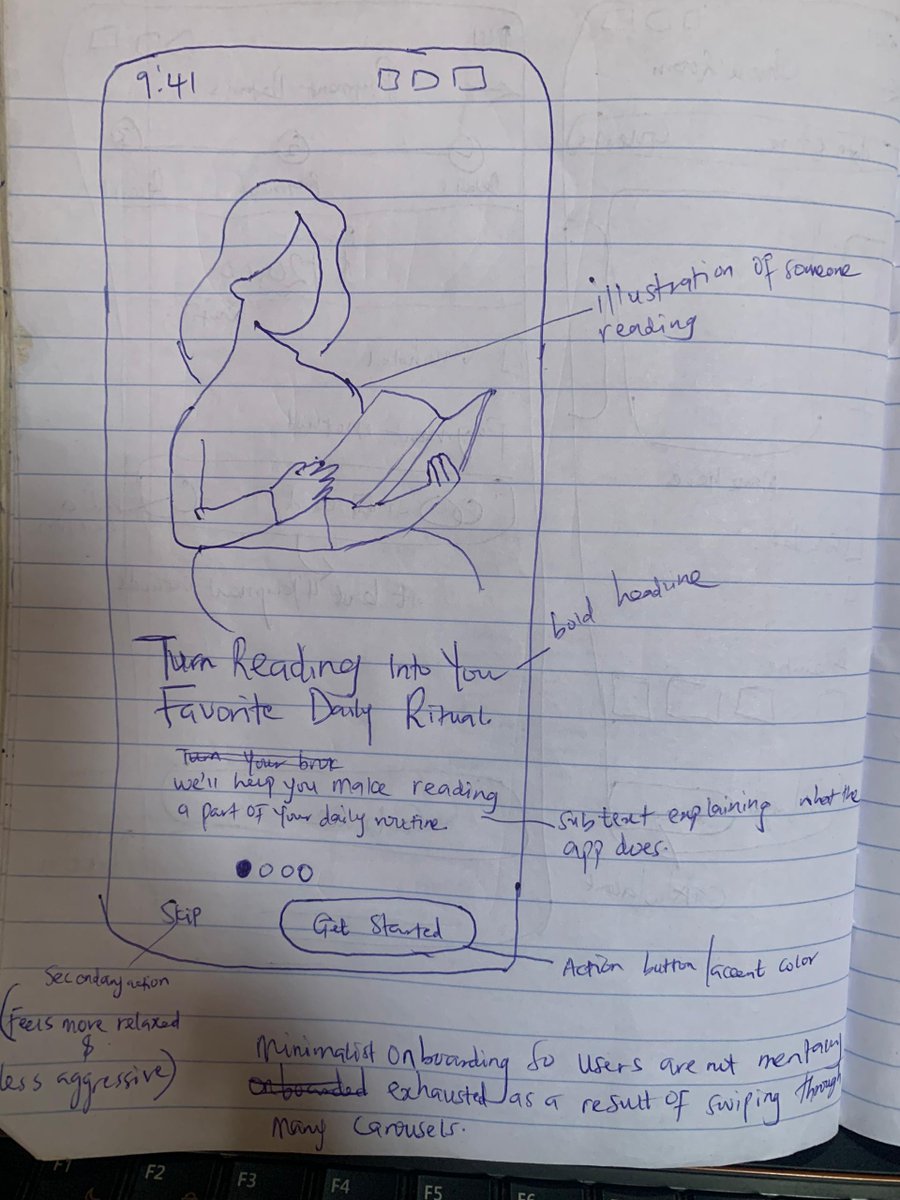 9:41
illustration of someone
reading
bold headline
Turn Reading Into You
Favorite Daily Ritual
Turn Your
we'll help you make reading
a part of your daily routine.
subtext explaining what the
app does.
Skip
Get Started
Action button/accent color
Secondary action
(Feels more relaxed
&
less aggressive)
Minimalist Onboarding so users are not mentally
Onboarded exhausted as a result of swiping through
many carousels.
F1
F2
F3
F4
F5